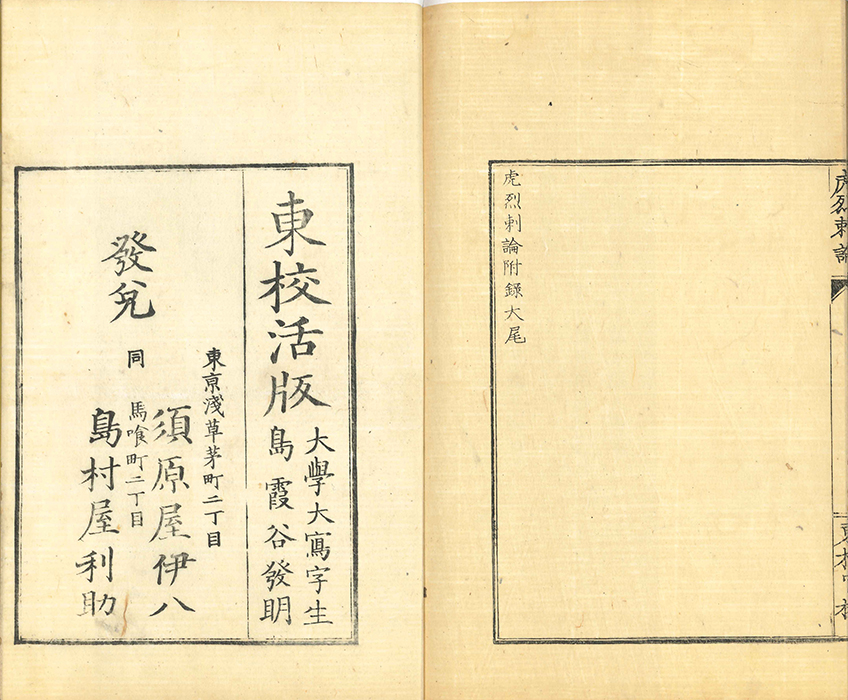 虎烈刺論
虎烈刺論附録大尾
東校活版
大學大寫字生
島霞谷發明
東亰淺草茅町二丁目
須原屋伊八
發兌
同 馬喰町二丁目
島村屋利助